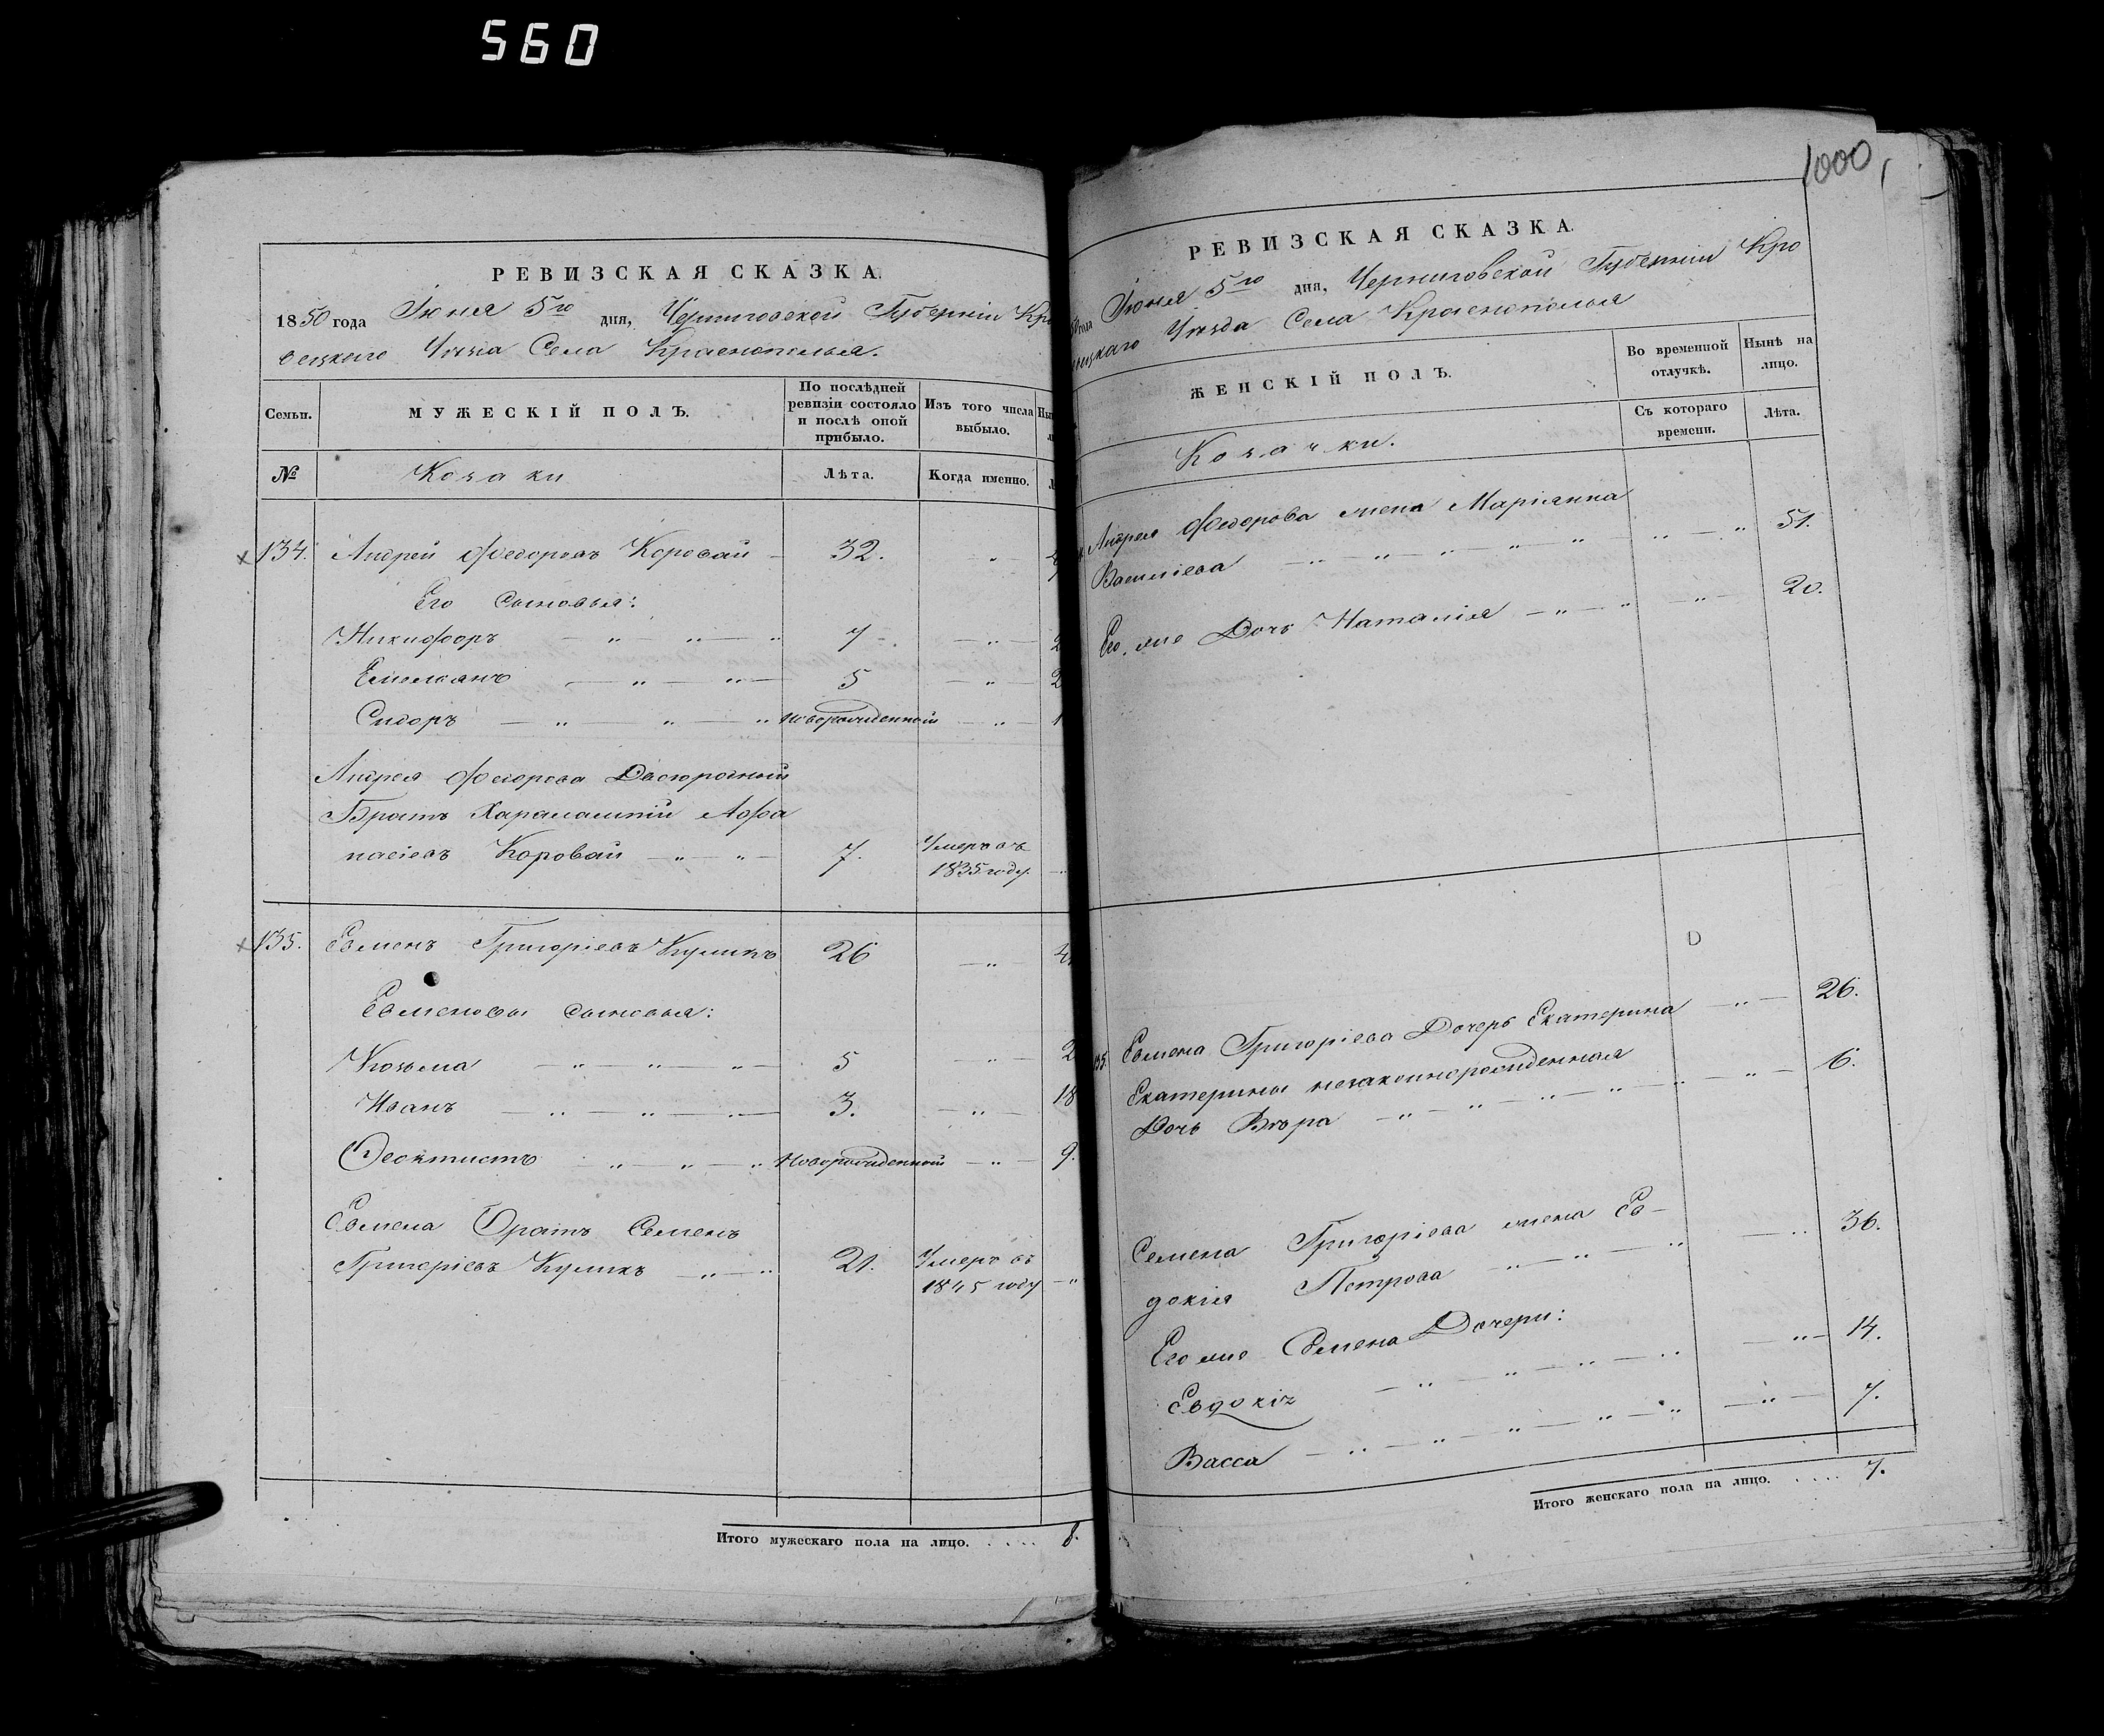 560
РЕВИЗСКАЯ СКАЗКА.
1850 года Июня 5го дня, Черниговской Губерніи Кро
вецкаго Уѣзда Села Краснополья.
Семьи.
МУЖЕСКІЙ ПОЛЪ.
По послѣдней ревизіи состояло и послѣ оной прибыло.
Изъ того числа выбыло.
№
Козаки
Лѣта.
Когда именно.
134. Андрей Федоровъ Коровай 32.
Его Сыновья:
Никифоръ 7
Емельянъ 5
Сидоръ Новорожденный
Андрея Федорова Двоюродный
Братъ Харалампій Афа
насіевъ Коровай 7. Умеръ въ
1835 году.
135. Евменъ Григоріевъ Куликъ 26
Евменовы сыновья:
Козьма 5
Иванъ 3. 18
Феоктистъ Новорожденный 9.
Евмена Братъ Семенъ
Григоріевъ Куликъ 21. Умеръ въ
1845 году
Итого мужескаго пола на лицо. . . . . 8.
1000
РЕВИЗСКАЯ СКАЗКА.
года Июня 5го дня, Черниговской Губерніи Кро
Уѣзда Села Краснополья
ЖЕНСКІЙ ПОЛЪ.
Во временной отлучкѣ.
Нынѣ на лицо.
Съ котораго времени.
Лѣта.
Козачки.
Андрея Федорова жена Маріянна
Василіева 51.
Его же Дочь Наталія 20.
135. Евмена Григоріева Дочерь Екатерина 26.
Екатерины незаконнорожденная
Дочь Вѣра 6.
Семена Григоріева жена Ев-
докія Петрова 36.
Его же Семена Дочери:
Евдокія 14.
Васса 7.
Итого женскаго пола на лицо. . . . . 7.